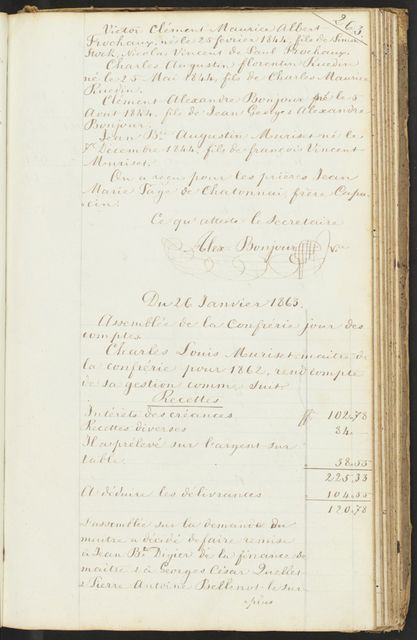 263
Victor Clément Maurice Albert
Frochaux, né le 25 fevrier 1844, fils de
Nicolas Vincent de Paul Frochaux.
Charles Augustin florentin Ruedin
né le 25 Mai 1844, fils de Charles Maurice
Ruedin.
Clément Alexandre Bonjour né le 5
Aout 1844, fils de Jean Georges Alexandre
Bonjour.
Jean Bte Augustin Muriset né le
Décembre 1844, fils de francois Vincent
Muriset.
On a reçu pour les prières Jean
Marie de Chatonnai, frère Capu-
cin.
Ce qu'atteste le Secretaire
Alex Bonjour
Du 26 Janvier 1863.
Assemblée de la Confrérie jour des
comptes
Charles Louis Muriset maitre de
la confrérie pour 1862, rend compte
de sa gestion comme suit.
Recettes
Intérêts des créances ff 102.78
Recettes diverses 84.
Il a prélevé sur l'argent sur
table 38.55
225.33
A déduire les délivrances 104.55
120.78
L'assemblée sur la demande du
maitre a décidé de faire remise
à Jean Bte Digier de la finance de
maitre & à Georges César Quellet
& Pierre Antoine Bellenot le sur-
plus